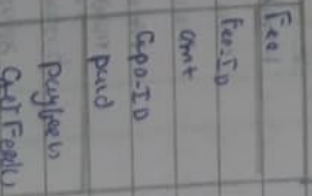 Fee
Fee-ID
amt
Cipo-ID
paid
payfee()